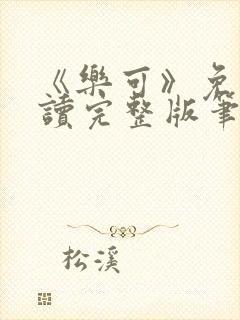 《樂可》免
讀完整版筆
松溪